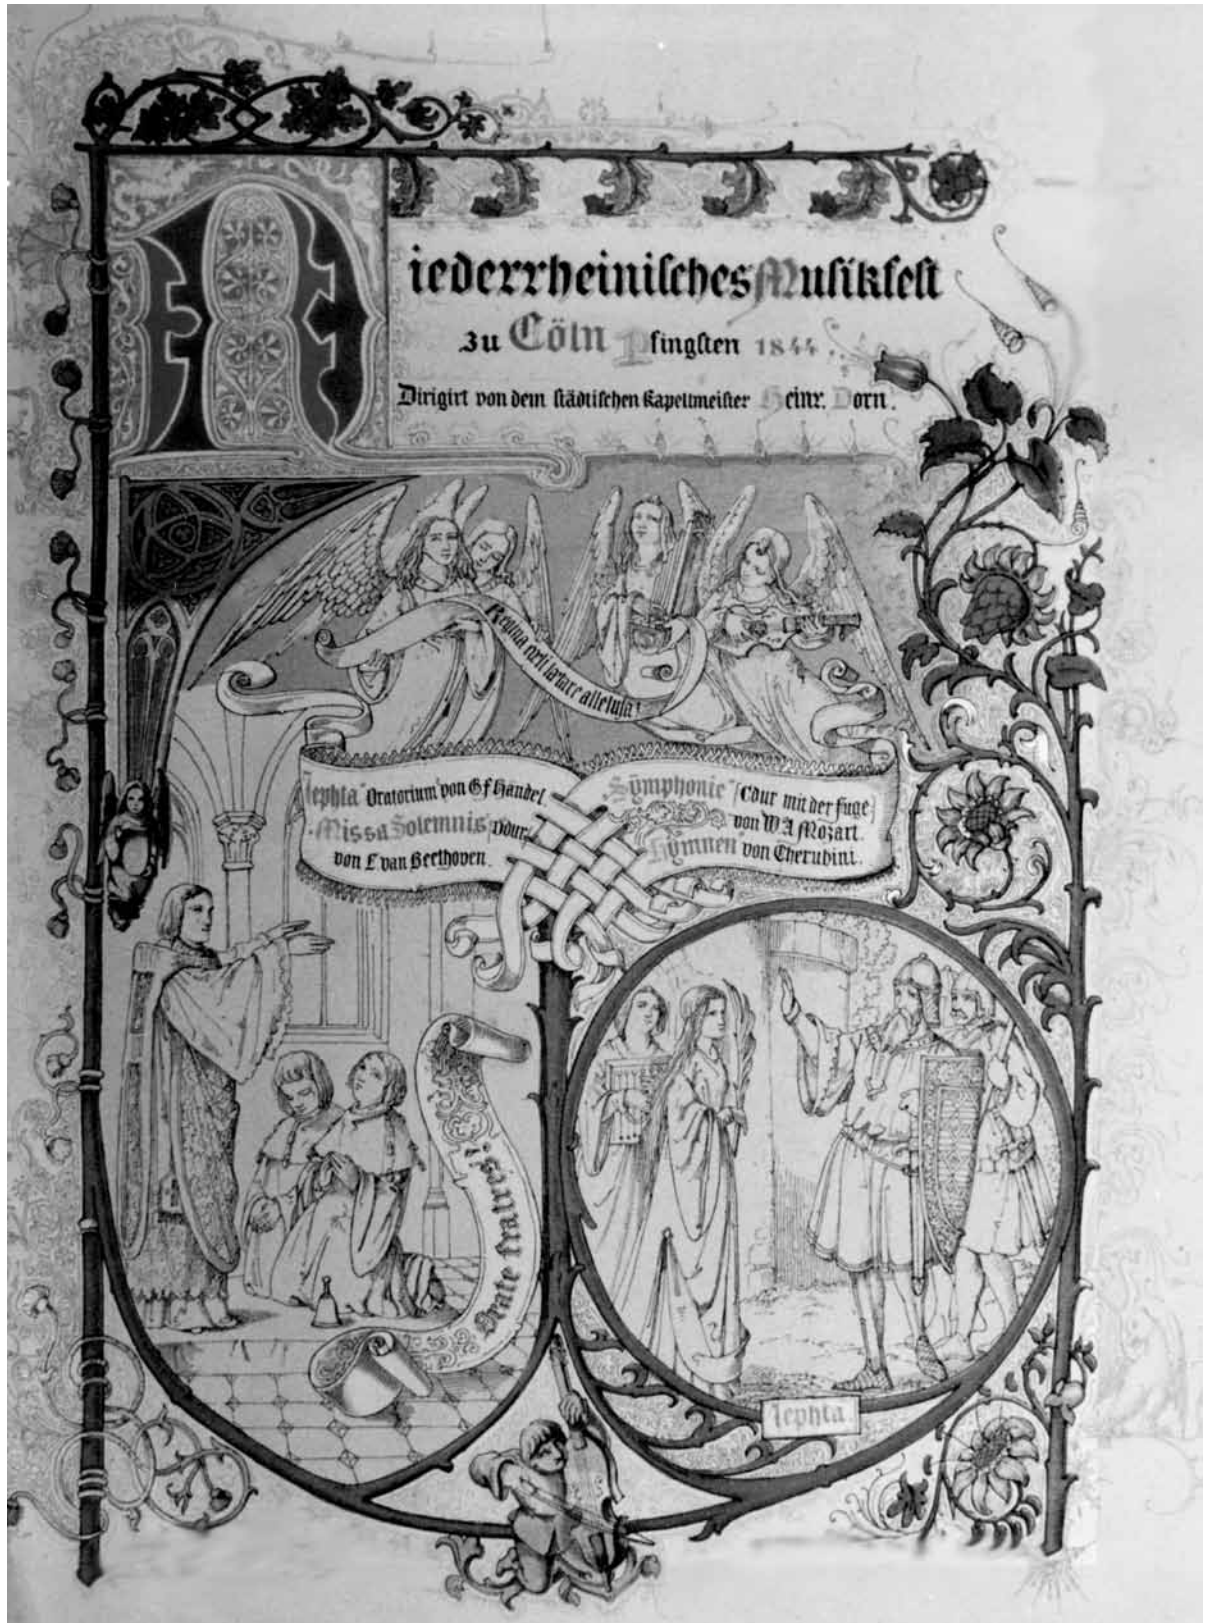 Niederrheinisches Musikfest
zu Cöln Pfingsten 1844.
Dirigirt von dem städtischen Kapellmeister Heinr. Dorn.
Regina coeli laetare alleluja!
Jephta Oratorium von Gf Händel
Missa Solemnis Ddur
von L van Beethoven.
Symphonie (Cdur mit der Fuge)
von W A Mozart.
Hymnen von Cherubini.
Orate fratres!
Jephta.